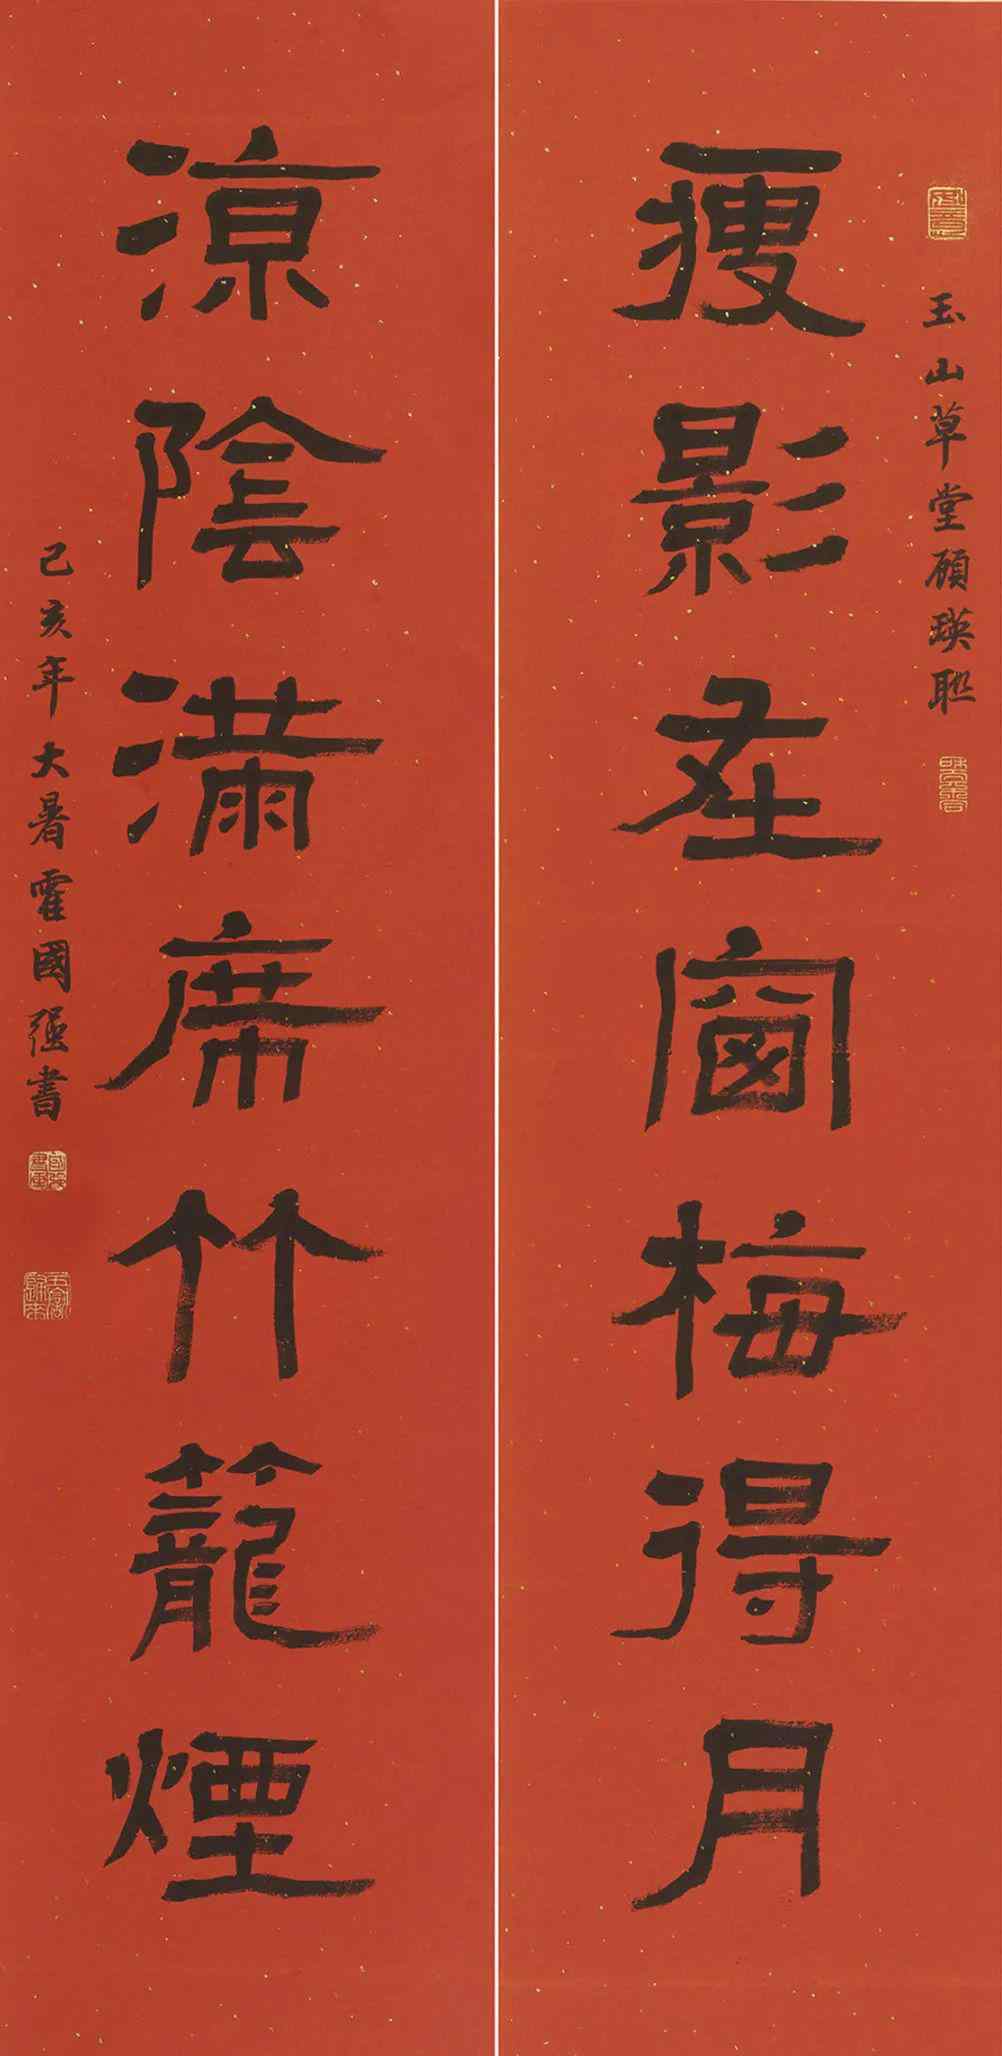 玉山草堂顧瑛聯
瘦影在窗梅得月
涼陰滿席竹籠煙
己亥年大暑霍國強書